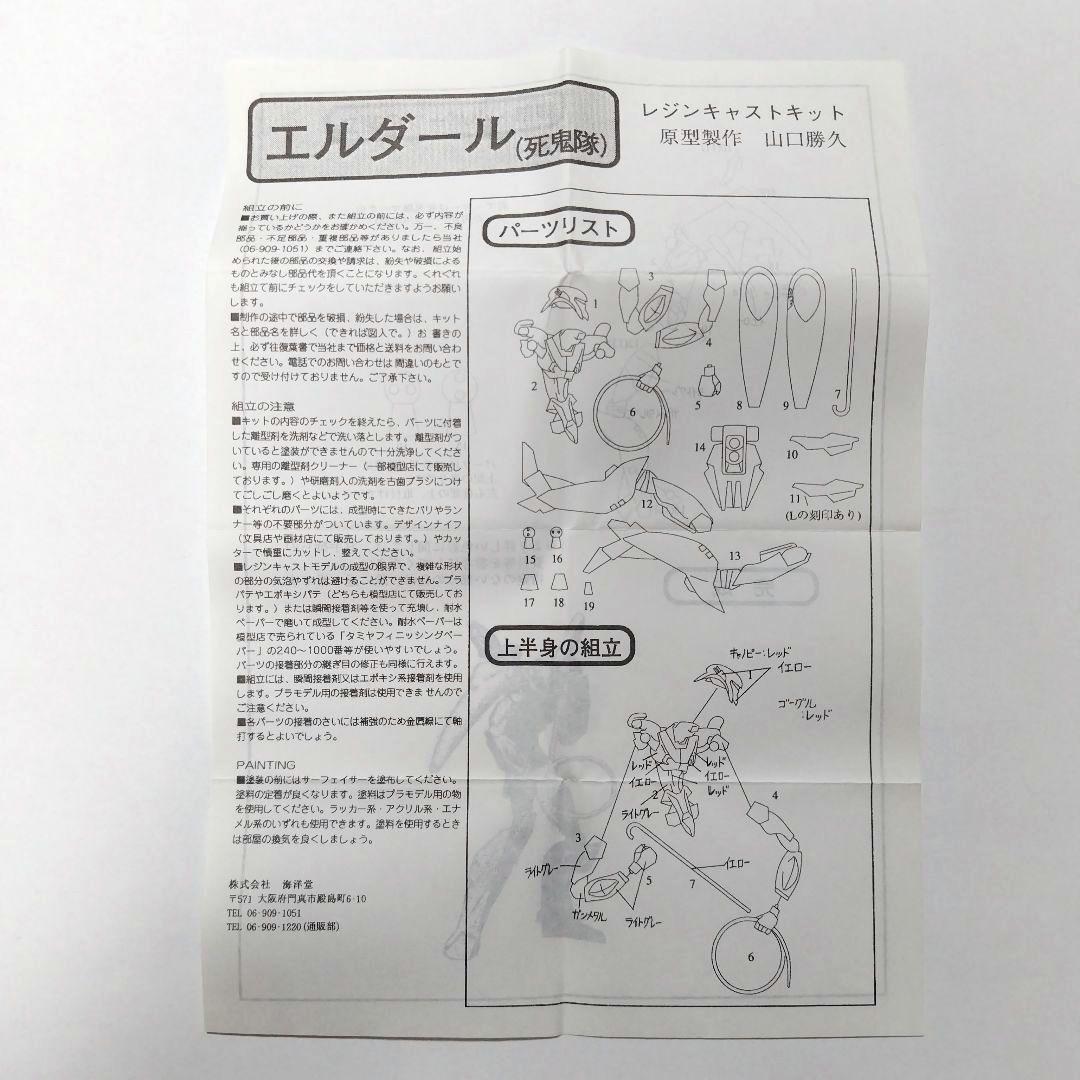 エルダール(死鬼隊)
レジンキャストキット
原型製作 山口勝久
組立の前に
■お買い上げの際、また組立の前には、必ず内容が
揃っているかどうかをお確かめください。万一、不良
部品・不足部品・重複部品等がありましたら当社
(06-909-1051)までご連絡下さい。なお、組立始
められた後の部品の交換や請求は、紛失や破損による
ものとみなし部品代を頂くことになります。くれぐれ
も組立て前にチェックをしていただきますようお願い
します。
■制作の途中で部品を破損、紛失した場合は、キット
名と部品名を詳しく(できれば図入で。)お 書きの
上、必ず往復葉書で当社まで価格と送料をお問い合わ
せください。電話でのお問い合わせは 間違いのもとで
すので受け付けておりません。ご了承下さい。
組立の注意
■キットの内容のチェックを終えたら、パーツに付着
した離型剤を洗剤などで洗い落とします。離型剤がつ
いていると塗装ができませんので十分洗浄してくださ
い。専用の離型剤クリーナー(一部模型店にて販売し
ております。)や研磨剤入の洗剤を古歯ブラシにつけ
てごしごし磨くとよいようです。
■それぞれのパーツには、成型時にできたバリやラン
ナー等の不要部分がついています。デザインナイフ
(文具店や画材店にて販売しております。)やカッ
ターで慎重にカットし、整えてください。
■レジンキャストモデルの成型の限界で、複雑な形状
の部分の気泡やずれは避けることができません。プラ
パテやエポキシパテ(どちらも模型店にて販売してお
ります。)または瞬間接着剤等を使って充填し、耐水
ペーパーで磨いて成型してください。耐水ペーパーは
模型店で売られている「タミヤフィニッシングペー
パー」の240〜1000番等が使いやすいでしょう。
パーツの接着部分の継ぎ目の修正も同様に行えます。
■組立には、瞬間接着剤又はエポキシ系接着剤を使用
します。プラモデル用の接着剤は使用できま せんので
ご注意ください。
■各パーツの接着のさいには補強のため金属線にて軸
打するとよいでしょう。
PAINTING
■塗装の前にはサーフェイサーを塗布してください。
塗料の定着が良くなります。塗料はプラモデル用の物
を使用してください。ラッカー系・アクリル系・エナ
メル系のいずれも使用できます。塗料を使用するとき
は部屋の換気を良くしましょう。
株式会社 海洋堂
〒571 大阪府門真市殿島町6-10
TEL 06-909-1051
TEL 06-909-1220(通販部)
パーツリスト
1
2
3
4
5
6
7
8
9
10
11
(Lの刻印あり)
12
13
14
15
16
17
18
19
上半身の組立
キャノピー:レッド
1
イエロー
ゴーグル
:レッド
レッド
イエロー
レッド
イエロー
レッド
2
ライトグレー
3
4
ライトグレー
5
7
イエロー
ガンメタル
ライトグレー
6